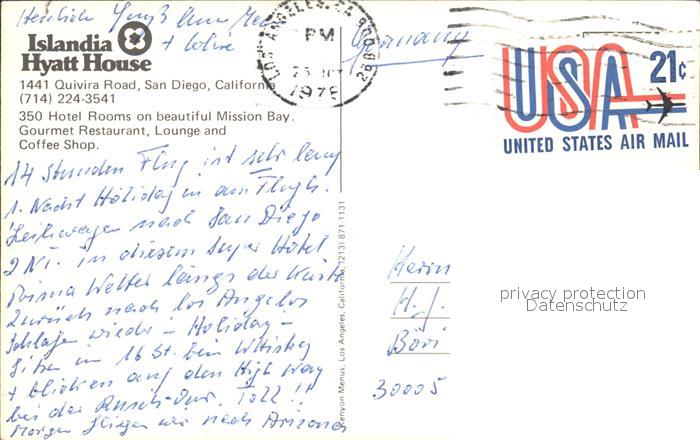 Herzlich Gruß
+
Islandia
Hyatt House
1441 Quivira Road, San Diego, California
(714) 224-3541
350 Hotel Rooms on beautiful Mission Bay.
Gourmet Restaurant, Lounge and
Coffee Shop.
14 Stunden Flug ist sehr lang
1. Nacht Holiday in am Flugh.
Leihwagen nach San Diego
2 N. in diesem Super Hotel
Prima Wetter längs der Küste
Zurück nach los Angelos
Schlafen wieder - Holiday -
Sitzen im 16 St. beim Whisky
+ blicken auf den High Way
bei der Rush-Our. Toll!!
Morgen fliegen wir nach Arizona
LOS ANGELES, CA 900
PM
1976
Germany
USA 21c
UNITED STATES AIR MAIL
Kenyon Menus, Los Angeles, California, (213) 871-1131
Herrn
H. J.
privacy protection
Datenschutz
30005